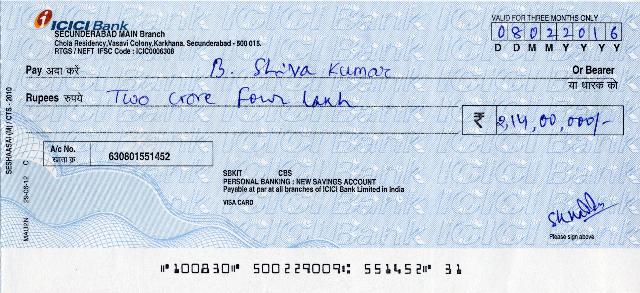 ICICI Bank
SECUNDERABAD MAIN Branch
Chola Residency,Vasavi Colony,Karkhana, Secunderabad - 500 015.
RTGS / NEFT IFSC Code : ICIC0006308
VALID FOR THREE MONTHS ONLY
08022016
D D M M Y Y Y Y
Pay अदा करें B. Shiva Kumar Or Bearer
या धारक को
Rupees रुपये Two Crore Four Lakh
₹ 2,14,00,000/-
A/c No.
खाता क्र. 630801551452
SBKIT CBS
PERSONAL BANKING : NEW SAVINGS ACCOUNT
Payable at par at all branches of ICICI Bank Limited in India
VISA CARD
Please sign above
SESHAASAI (M) / CTS - 2010
⑈100830⑈ 500229009⑆ 551452⑈ 31